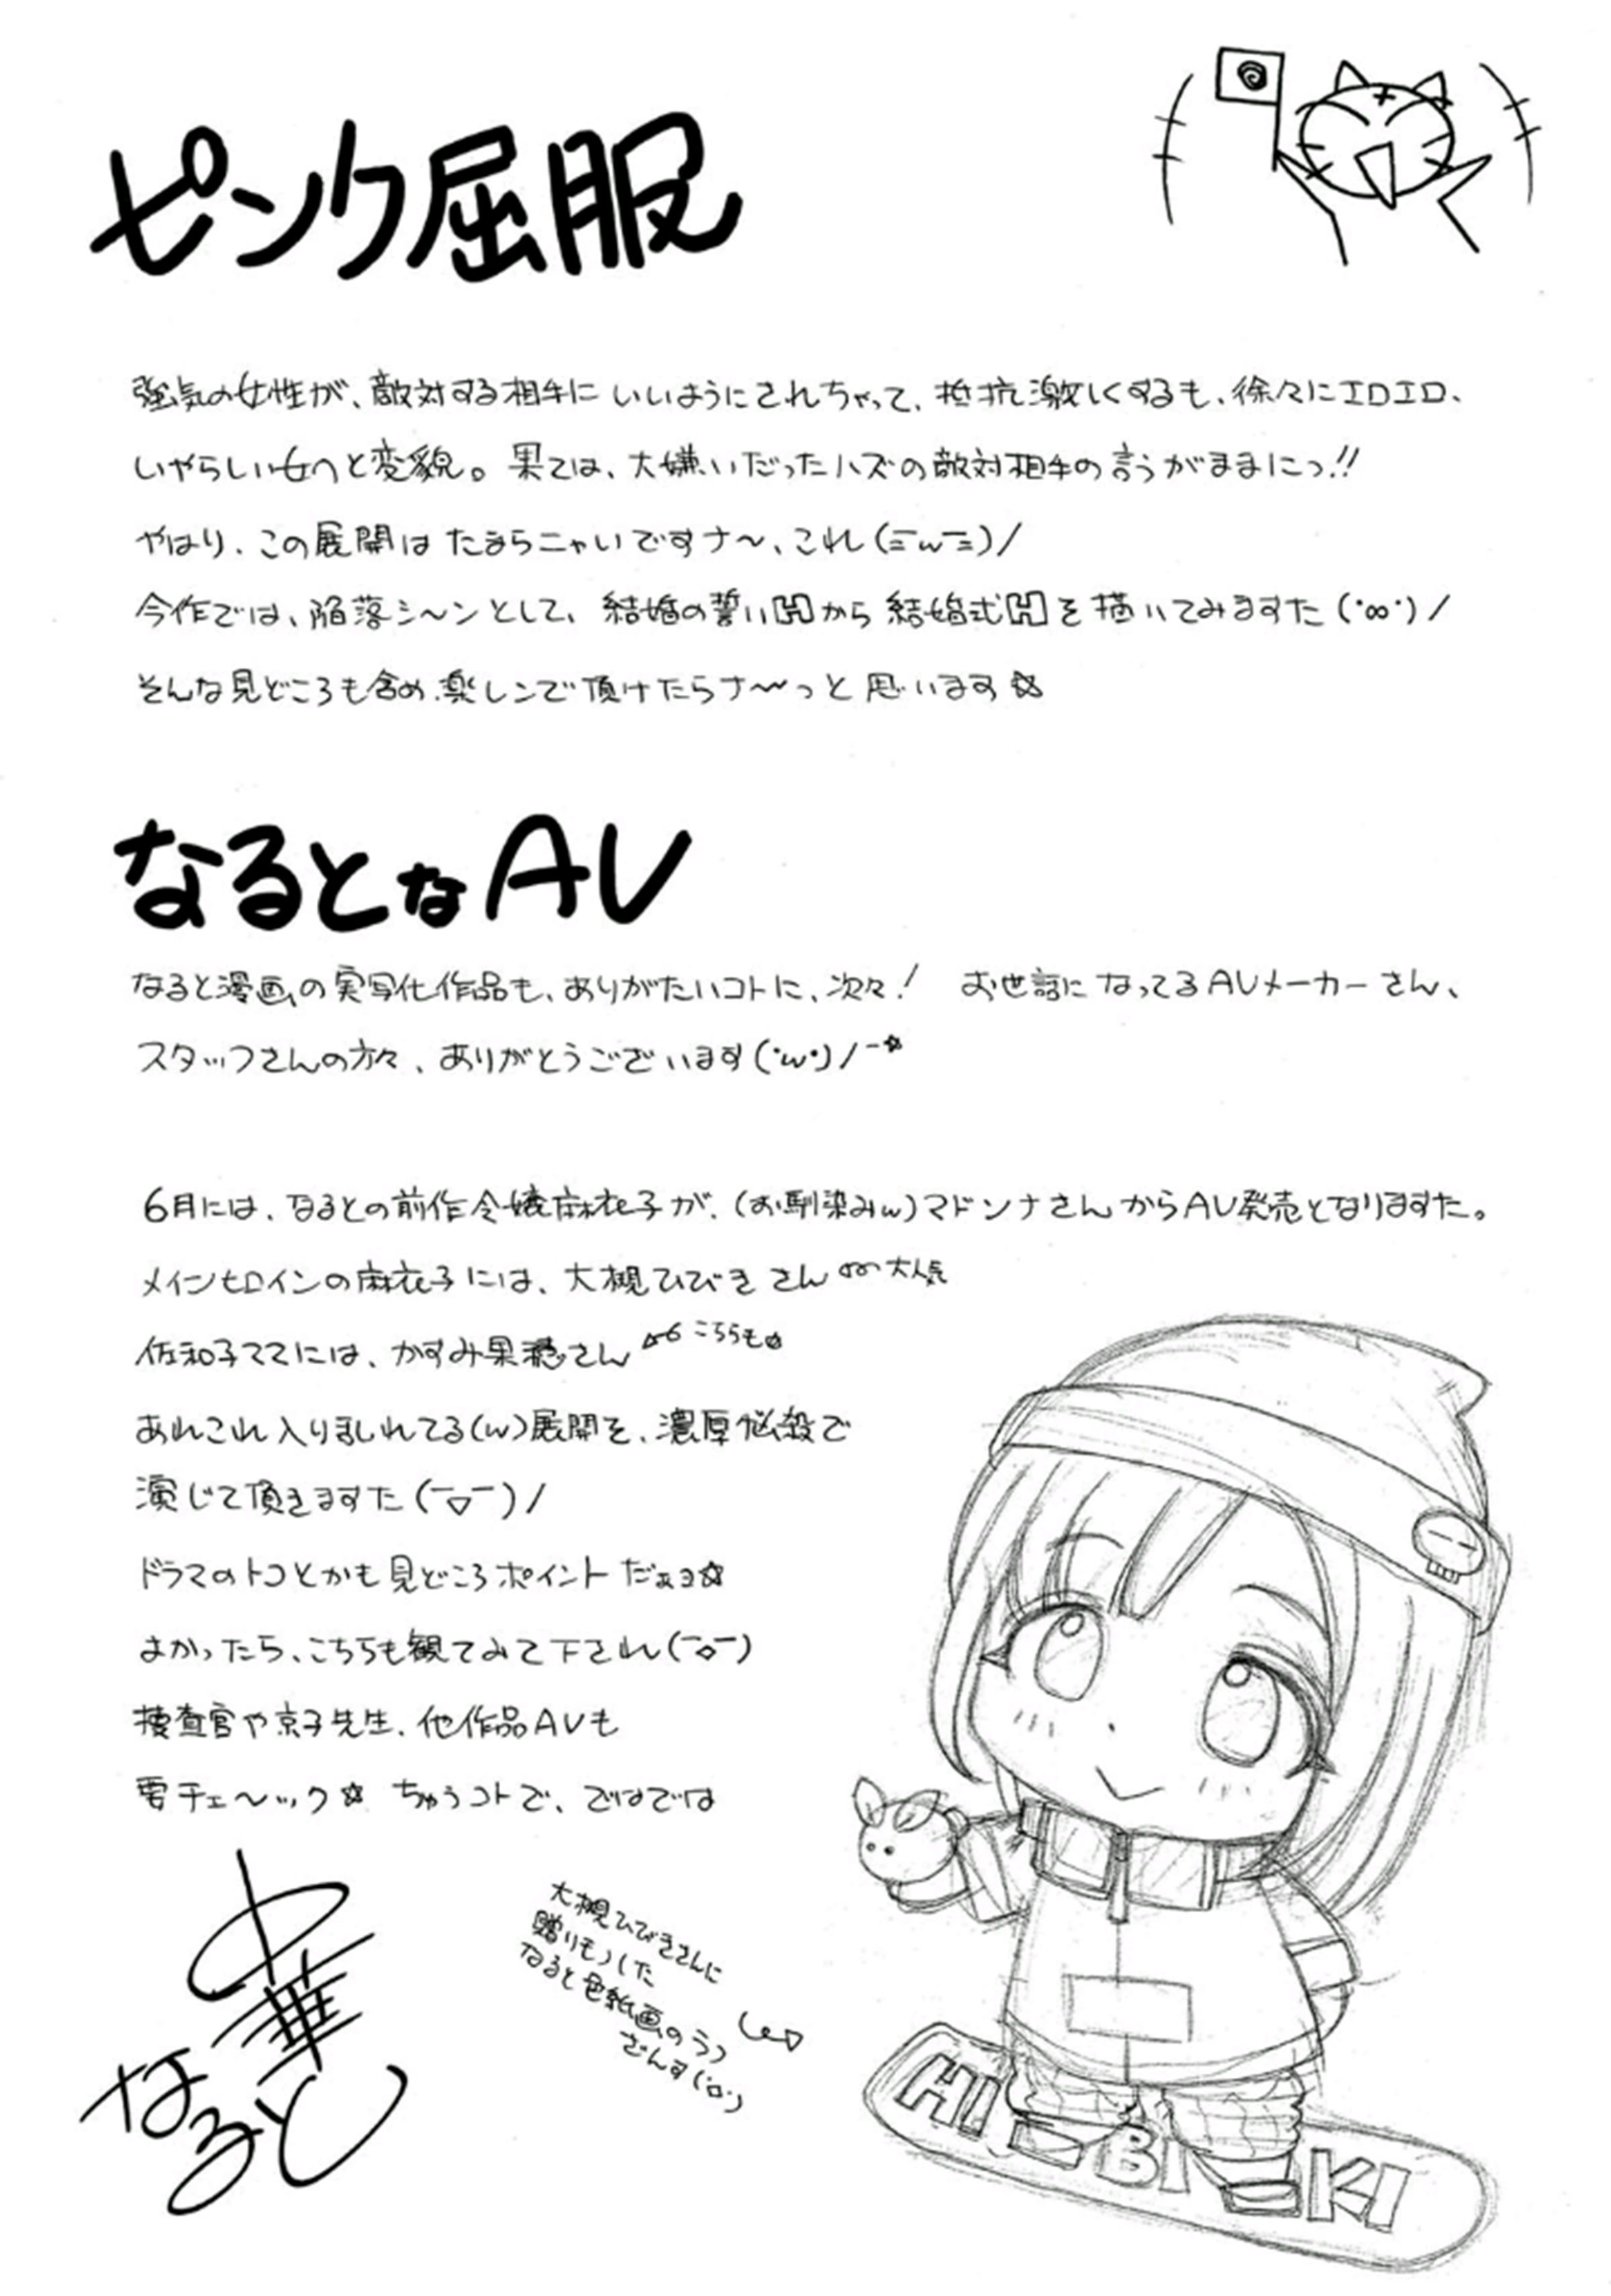 ピンク屈服
強気の女性が、敵対する相手にいいようにされちゃって、抵抗激しくするも、徐々にエロエロ、
いやらしい女へと変貌。果ては、大嫌いだったハズの敵対相手の言うがままにっ!!
やはり、この展開はたまらニャいですナ〜、これ(ミ￣w￣ミ)/
今作では、陥落シ〜ンとして、結婚の誓いHから結婚式Hを描いてみますた(・∞・)/
そんな見どころも含め、楽しンで頂けたらナ〜〜っと思います☆
なるとなAV
なると漫画の実写化作品も、ありがたいコトに、次々! お世話になってるAVメーカーさん、
スタッフさんの方々、ありがとうございます(・w・)/-☆
6月には、なるとの前作令嬢麻衣子が、(お馴染みw)マドンナさんからAV発売となりますた。
メインヒロインの麻衣子には、大槻ひびきさん 大人気
佐和子ママには、かすみ果穂さん こちらも☆
あれこれ入りまじれてる(w)展開を、濃厚悩殺で
演じて頂きますた(￣▽￣)/
ドラマのトコとかも見どころポイントだぁョ☆
よかったら、こちらも観てみて下され(￣◇￣)
捜査官や京子先生、他作品AVも
要チェ〜ック☆ ちゅうコトで、ではでは
中華
なると
大槻ひびきさんに
贈りモノした
なると色紙画のラフ
ざんす(・ロ・)
HIBIKI